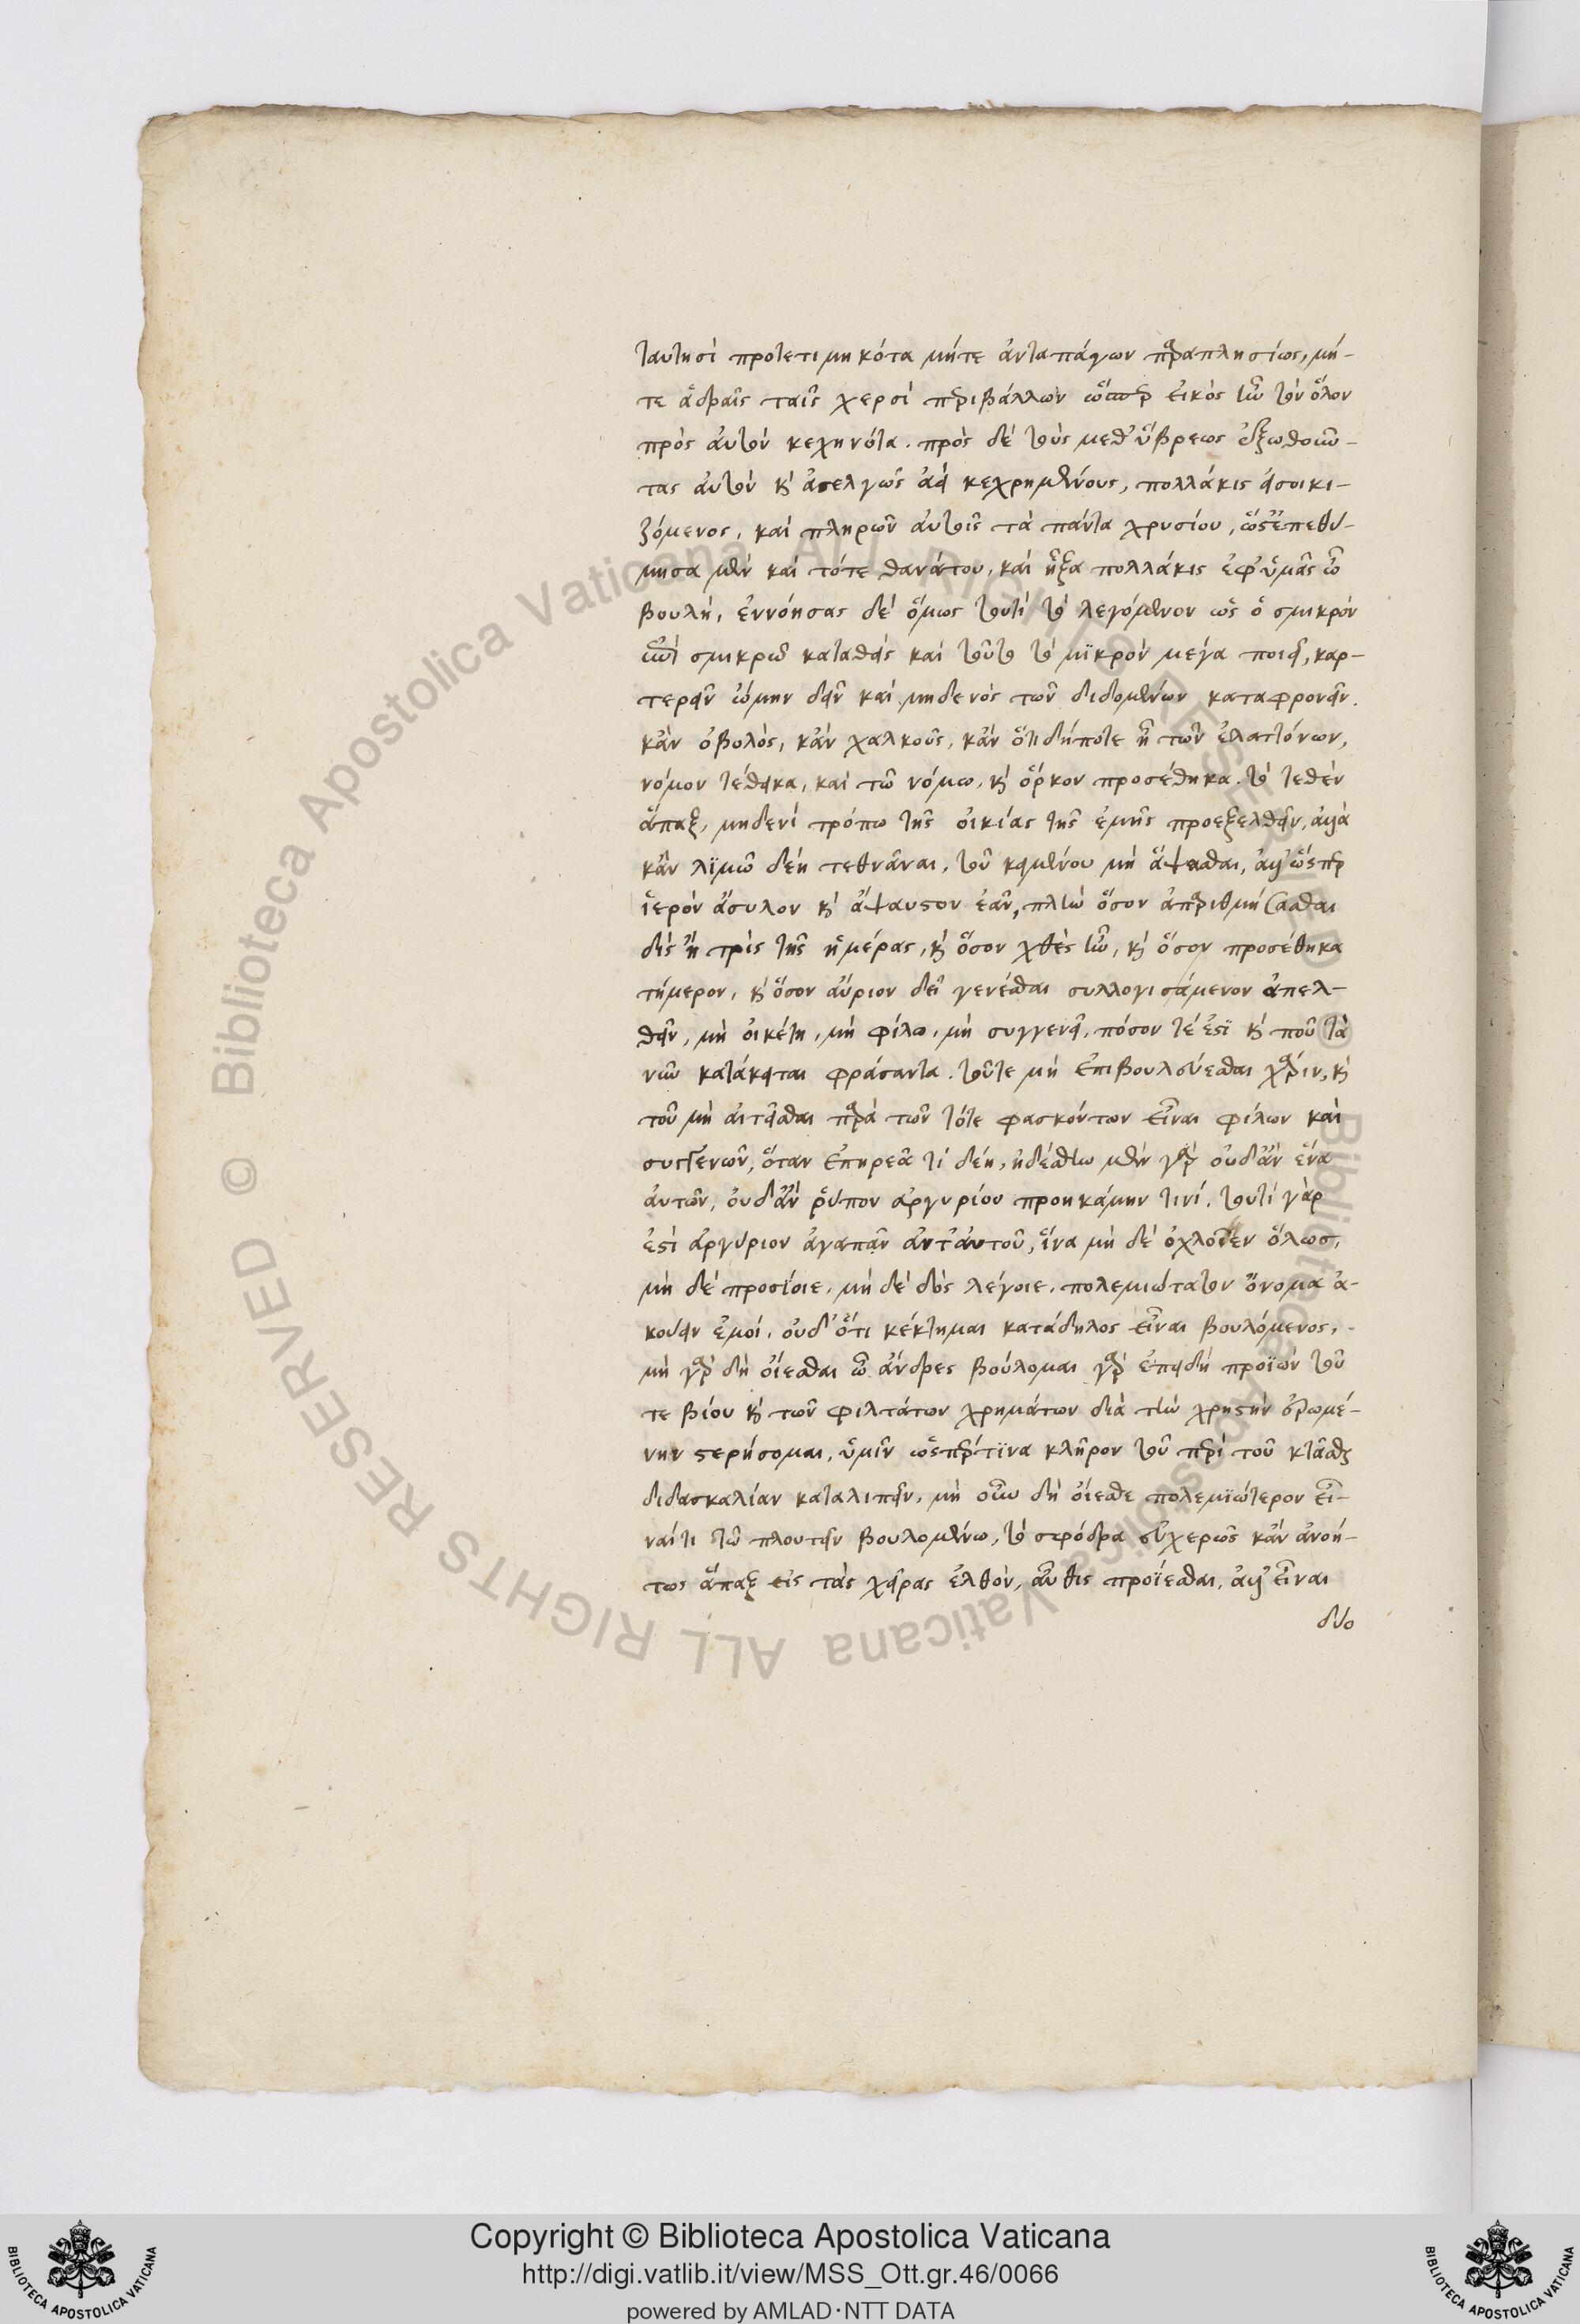 ταυτησὶ προτετιμηκότα μήτε ἀνταπάγων παραπλησίως, μή-
τε ἁδραῖς ταῖς χερσὶ περιβάλλων ὥσπερ εἰκὸς ἦν τὸν ὅλον
πρὸς αὐτὸν κεχηνότα. πρὸς δὲ τοὺς μεθ' ὕβρεως ἐξωθοῦν-
τας αὐτὸν κ ἀσελγῶς ἀεὶ κεχρημένους, πολλάκις εἰσοικι-
ζόμενος, καὶ πληρῶν αὐτοῖς τὰ πάντα χρυσίου, ὡς ἐπεθύ-
μησα μὲν καὶ τότε θανάτου, καὶ ἧξα πολλάκις ἐφ' ὑμᾶς ὦ
βουλὴ, ἐννοήσας δὲ ὅμως τουτὶ τὸ λεγόμενον ὡς ὁ σμικρὸν
ἐπὶ σμικρῷ καταθεὶς καὶ τοῦτο τὸ μικρὸν μέγα ποιεῖ, καρ-
τερεῖν ᾤμην δεῖν καὶ μηδενὸς τῶν διδομένων καταφρονεῖν.
κἂν ὀβολὸς, κἂν χαλκοῦς, κἂν ὁτιδήποτε ᾖ τῶν ἐλαττόνων,
νόμον τέθεικα, καὶ τῷ νόμῳ, κ ὅρκον προσέθηκα. τὸ τεθὲν
ἅπαξ, μηδενὶ τρόπῳ τῆς οἰκίας τῆς ἐμῆς προεξελθεῖν, ἀλλὰ
κἂν λιμῷ δέῃ τεθνᾶναι, τοῦ κειμένου μὴ ἅψασθαι, ἀλλ' ὥσπερ
ἱερὸν ἄσυλον κ ἄψαυστον ἐᾶν, πλὴν ὅσον ἀπαριθμήσασθαι
δὶς ἢ τρὶς τῆς ἡμέρας, κ ὅσον χθὲς ἦν, κ ὅσον προσέθηκα
τήμερον, κ ὅσον αὔριον δεῖ γενέσθαι συλλογισάμενον ἀπελ-
θεῖν, μὴ οἰκέτῃ, μὴ φίλῳ, μὴ συγγενεῖ, πόσον τέ ἐστι κ ποῦ τὰ
νῦν κατάκειται φράσαντα. τοῦτε μὴ ἐπιβουλεύεσθαι χάριν, κ
τοῦ μὴ αἰτεῖσθαι παρὰ τῶν τότε φασκόντων εἶναι φίλων καὶ
συγγενῶν, ὅταν ἐπηρεᾶ τί δέη, ᾐδέσθην μὲν γὰρ οὐδ' ἂν ἕνα
αὐτῶν, οὐδ' ἂν ῥύπον ἀργυρίου προηκάμην τινί. τουτὶ γὰρ
ἐστὶ ἀργύριον ἀγαπᾶν ἀντ' αὐτοῦ, ἵνα μὴ δὲ ὀχλοῖεν ὅλως,
μὴ δὲ προσίοιε, μὴ δὲ δὸς λέγοιε, πολεμιώτατον ὄνομα ἀ-
κούειν ἐμοί, οὐδ' ὅτι κέκτημαι κατάδηλος εἶναι βουλόμενος,
μὴ γὰρ δὴ οἴεσθαι ὦ ἄνδρες βούλομαι γὰρ ἐπειδὴ προϊὼν τοῦ
τε βίου κ τῶν φιλτάτων χρημάτων διὰ τὴν χρηστὴν εἱρωμέ-
νην στερήσομαι, ὑμῖν ὥσπερ τινα κλῆρον τοῦ περὶ τοῦ κτᾶσθαι
διδασκαλίαν καταλιπεῖν, μὴ οὕτω δὴ οἴεσθε πολεμιώτερον εἶ-
ναί τι τῷ πλουτεῖν βουλομένῳ, τὸ σφόδρα εὐχερῶς κἂν ἀνοή-
τως ἅπαξ εἰς τὰς χεῖρας ἐλθὸν, αὖθις προΐεσθαι, ἀλλ' εἶναι
δύο
Copyright © Biblioteca Apostolica Vaticana
http://digi.vatlib.it/view/MSS_Ott.gr.46/0066
powered by AMLAD·NTT DATA
BIBLIOTECA APOSTOLICA VATICANA
BIBLIOTECA APOSTOLICA VATICANA
© Biblioteca Apostolica Vaticana ALL RIGHTS RESERVED © Biblioteca Apostolica Vaticana ALL RIGHTS RESERVED